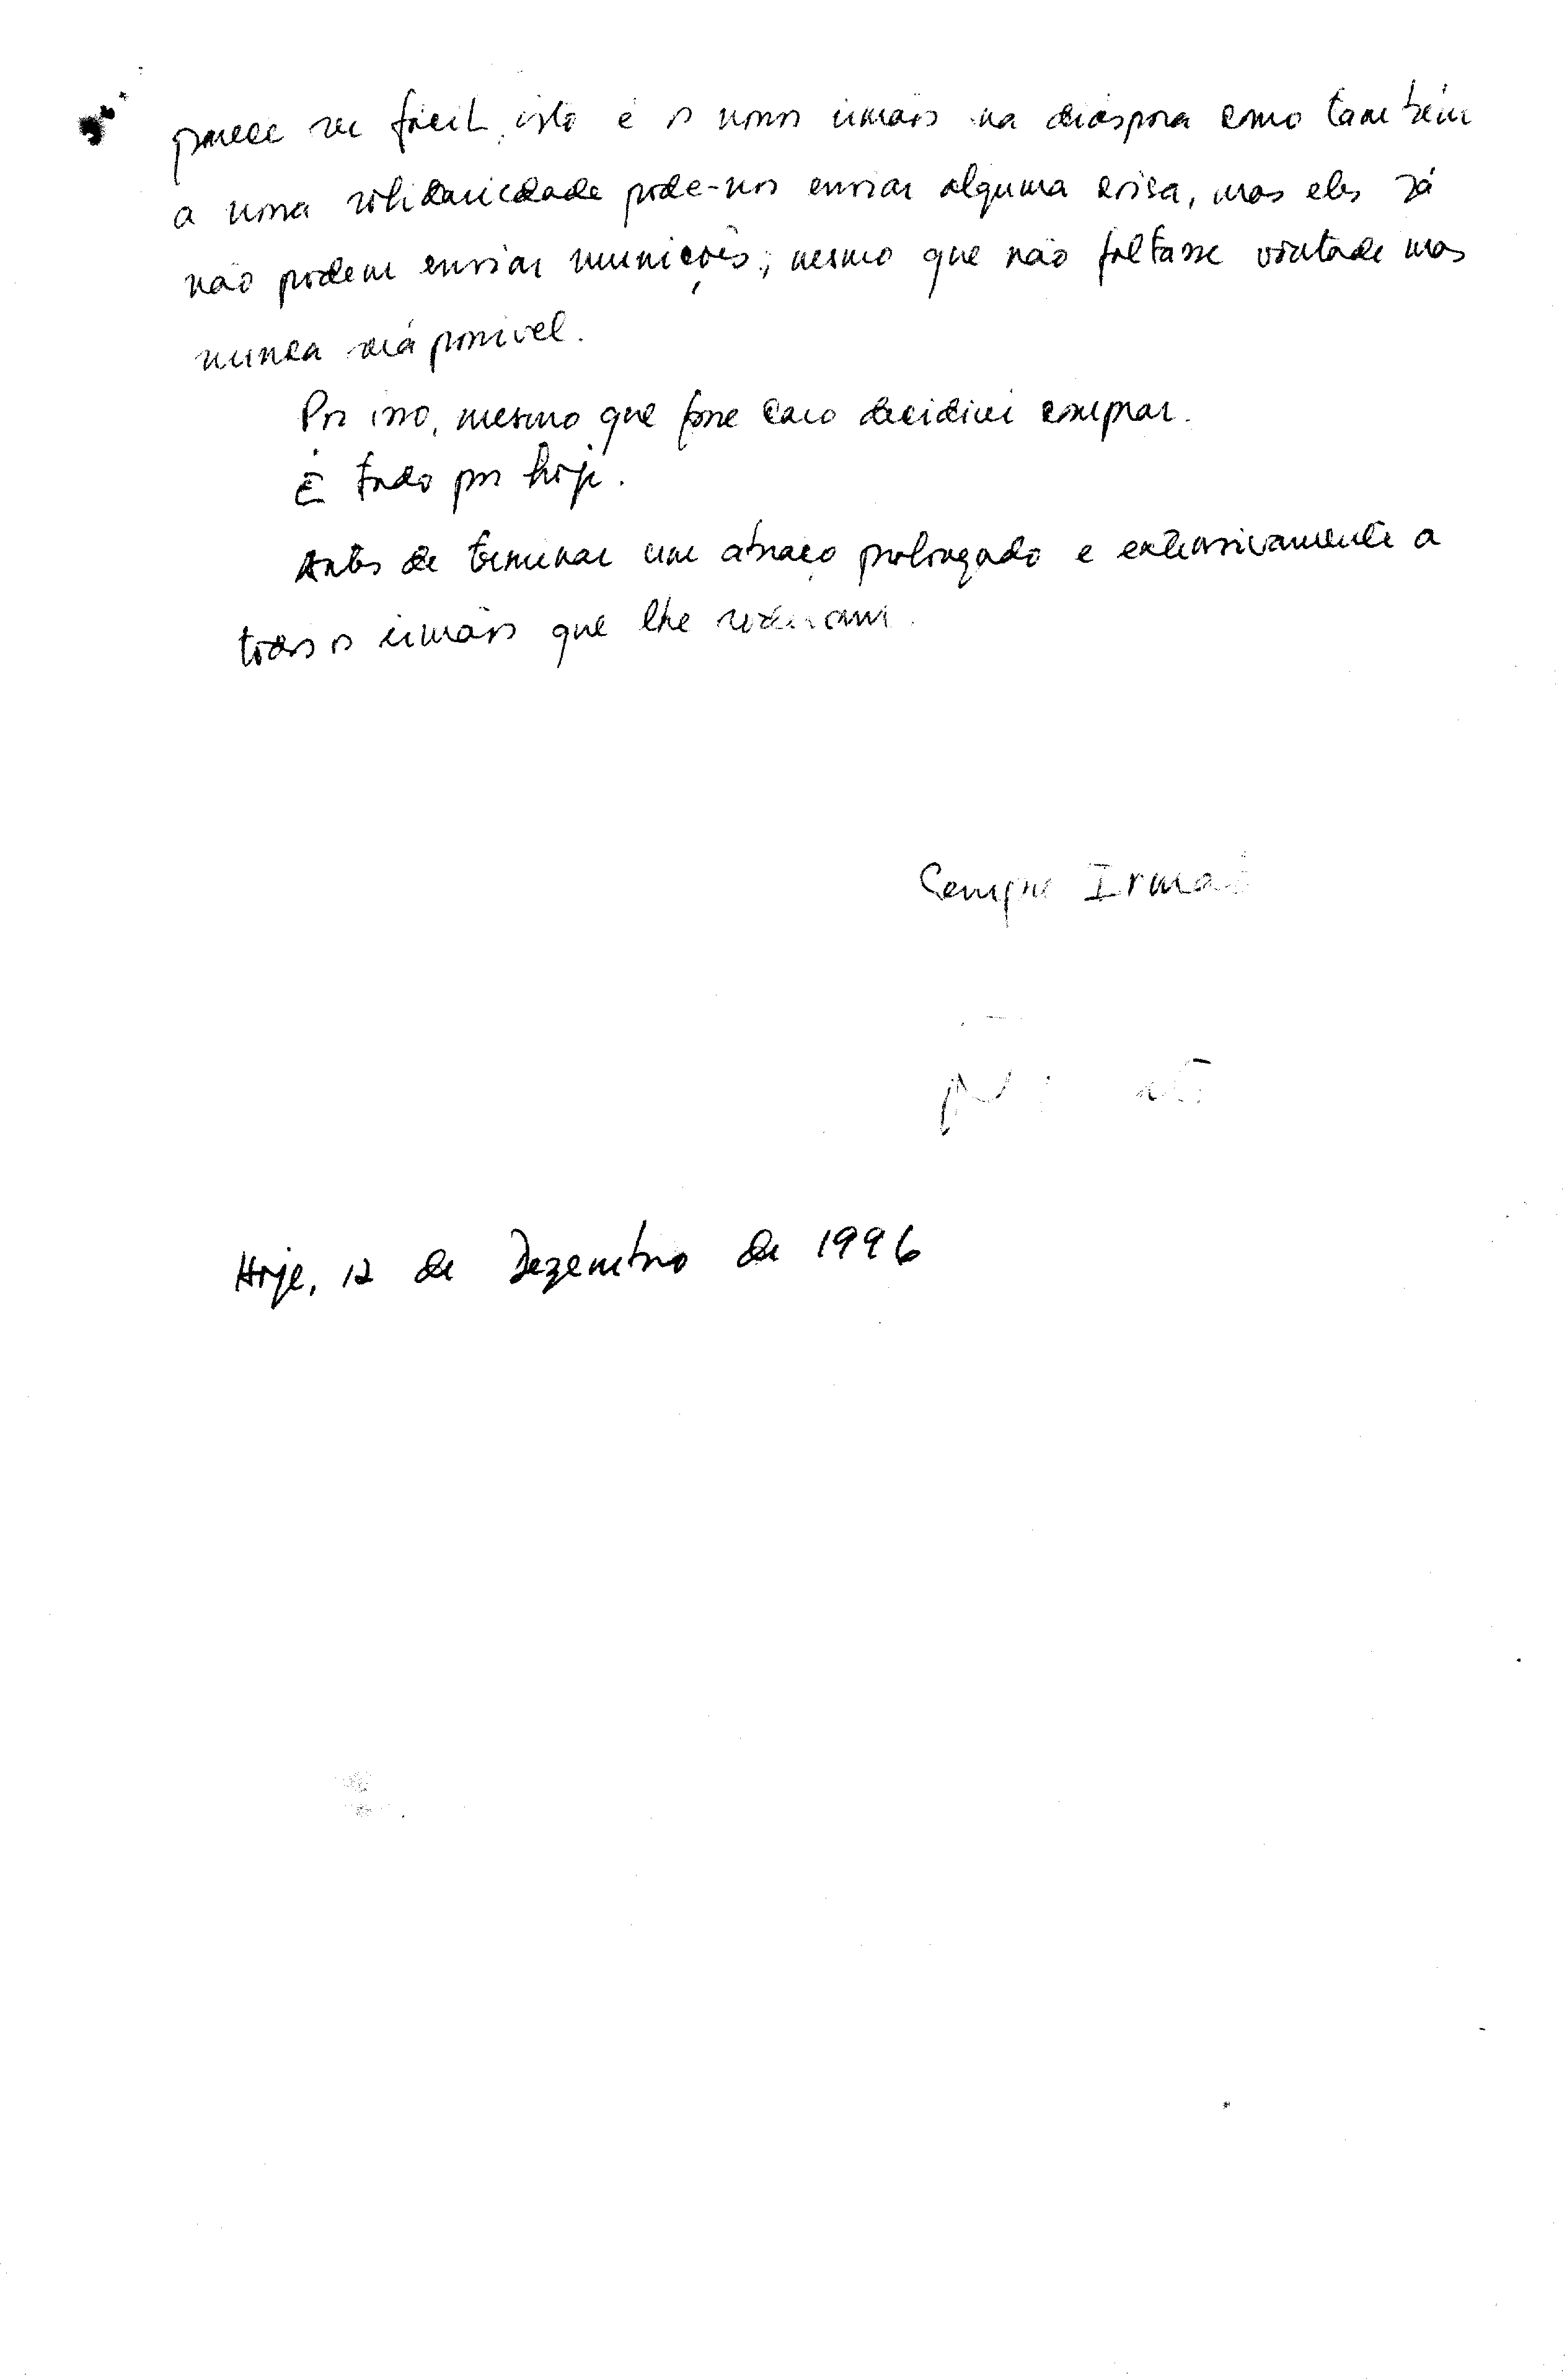 parece ser fácil, isto é os nossos irmãos na diáspora como também
a nossa solidariedade pode-nos enviar alguma coisa, mas eles já
não podem enviar munições; mesmo que não faltasse vontade mas
nunca será possível.
Por isso, mesmo que fosse caro decidirei comprar.
É tudo por hoje.
Antes de terminar um abraço prolongado e extensivamente a
todos os irmãos que lhe rodeiam.
Sempre Irmão
Hoje, 12 de Dezembro de 1996